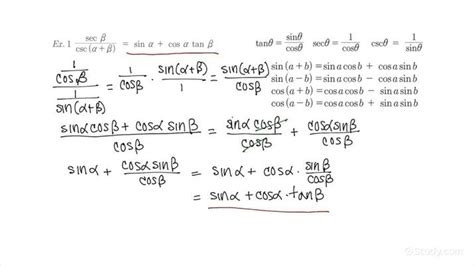 Ex. 1 sec β / csc (α + β) = sin α + cos α tan β
tanθ = sinθ/cosθ secθ = 1/cosθ cscθ = 1/sinθ
(1/cosβ) / (1/sin(α+β)) = 1/cosβ · sin(α+β)/1 = sin(α+β)/cosβ
sin(a + b) = sin a cos b + cos a sin b
sin(a − b) = sin a cos b − cos a sin b
cos(a + b) = cos a cos b − sin a sin b
cos(a − b) = cos a cos b + sin a sin b
(sinα cosβ + cosα sinβ)/cosβ = sinα cosβ/cosβ + cosα sinβ/cosβ
sinα + cosα sinβ/cosβ = sinα + cosα · sinβ/cosβ
= sinα + cosα · tanβ
Study.com